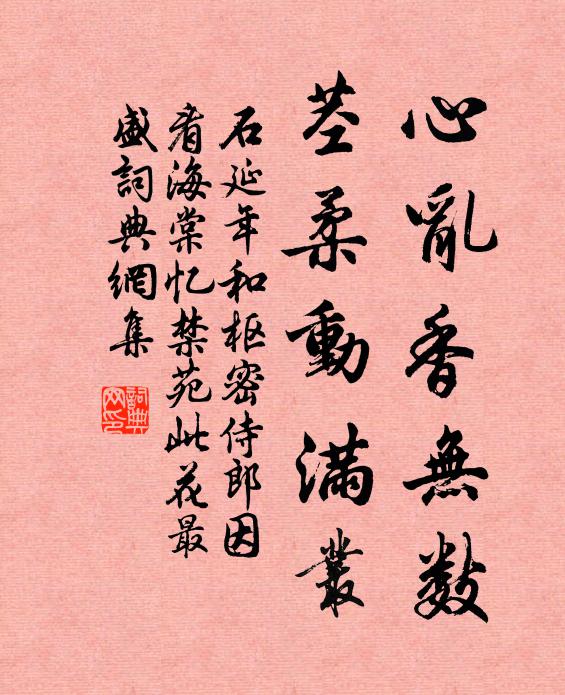 心亂香無數
莖柔動滿叢
石延年和枢密侍郎因
看海棠忆禁苑此花最
盛詞典網集
詞典网印